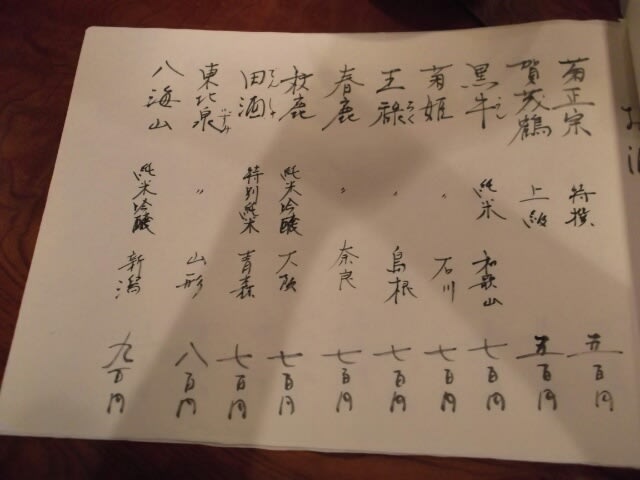 菊正宗 特撰 五百円
賀茂鶴 上級 五百円
黒牛 純米 和歌山 七百円
菊姫 〃 石川 七百円
王祿 ろく 〃 島根 七百円
春鹿 〃 奈良 七百円
秋鹿 純米吟醸 大阪 七百円
田酒 でんしゅ 特別純米 青森 七百円
東北泉 〃 山形 八百円
八海山 純米吟醸 新潟 九百円